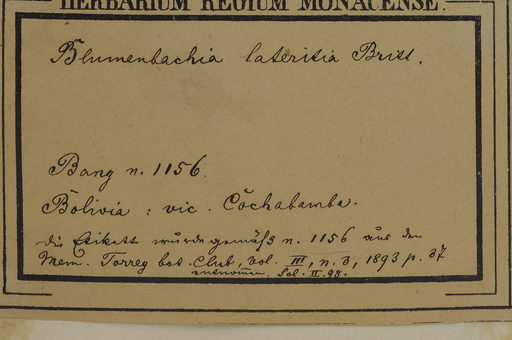 HERBARIUM REGIUM MONACENSE.
Blumenbachia lateritia Britt.
Bang n. 1156.
Bolivia : vic. Cochabamba.
die Etikett wurde gemäß n. 1156 aus den
Mem. Torrey bot. Club, Vol. III, n. 3, 1893 p. 37
entnommen. Sol. II. 98.